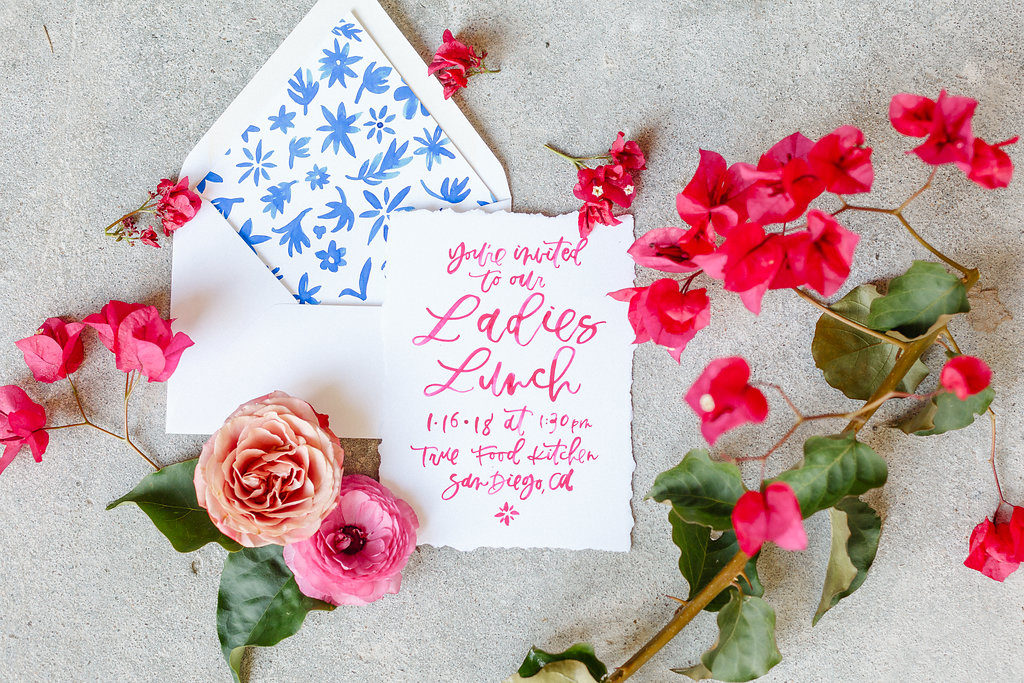 you're invited
to our
Ladies
Lunch
1•16•18 at 1:30pm
True Food Kitchen
San Diego, CA